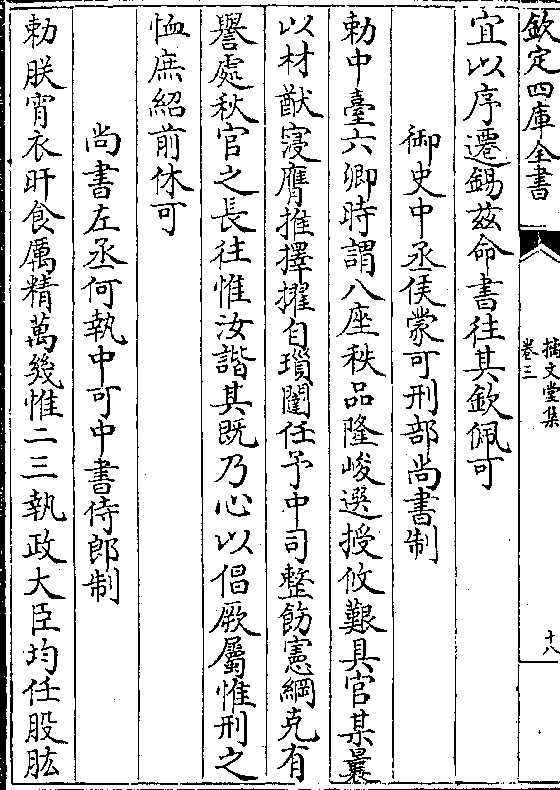 欽定四庫全書
摛文堂集
卷三
十八
宜以序遷錫茲命書往其欽佩可
御史中丞侯蒙可刑部尚書制
勅中臺六卿時謂八座秩品隆峻選授攸艱具官某曩
以材猷寖膺推擇擢自瑣闥任予中司整飭憲綱克有
譽處秋官之長往惟汝諧其既乃心以倡厥屬惟刑之
恤庶紹前休可
尚書左丞何執中可中書侍郎制
勅朕宵衣旰食厲精萬幾惟二三執政大臣均任股肱